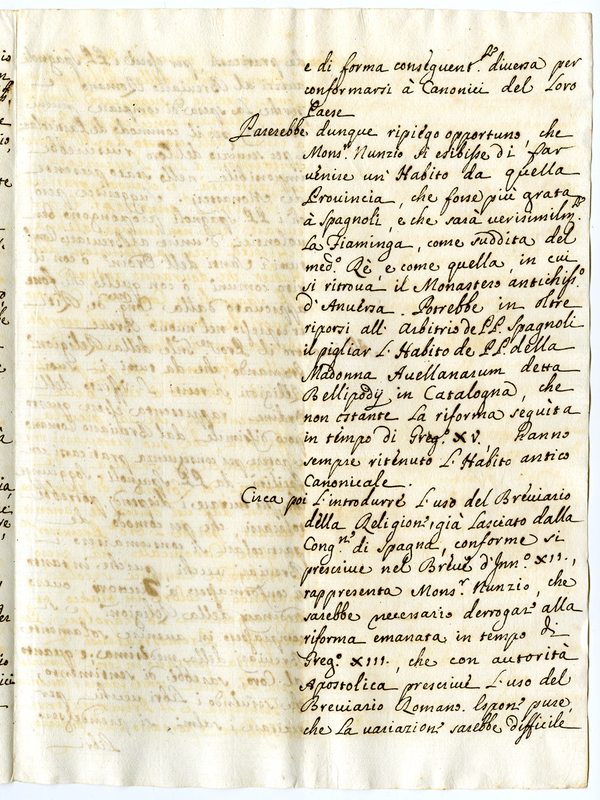 e di forma conseguentte diversa per
conformarsi à Canonici del Loro
Paese
Parerebbe dunque ripiego opportuno, che
Monsr. Nunzio si esibisse di far
venire un' Habito da quella
Provincia, che fosse più grata
à Spagnoli, e che sarà verisimilmte.
La Fiaminga, come suddita del
medo. Rè, e come quella, in cui
si ritrova il Monastero antichisso.
d'Anversa. Potrebbe in oltre
riporsi all' arbitrio de PP. Spagnoli
il pigliar L'Habito de PP. della
Madonna Avellanarum detta
Bellipodÿ in Catalogna, che
non ostante La riforma seguita
in tempo di Grego. XV. hanno
sempre ritenuto L'Habito antico
Canonicale.
Circa poi L'introdurre L'uso del Breviario
della Religione, già Lasciato dalla
Congne. di Spagna, conforme si
prescrive nel Breve d'Inno. XII.,
rappresenta Monsr. Nunzio, che
sarebbe necessario derogare alla
riforma emanata in tempo di
Grego. XIII., che con autorità
Apostolica prescrive L'uso del
Breviario Romano. Espone pure,
che La variazione sarebbe difficile